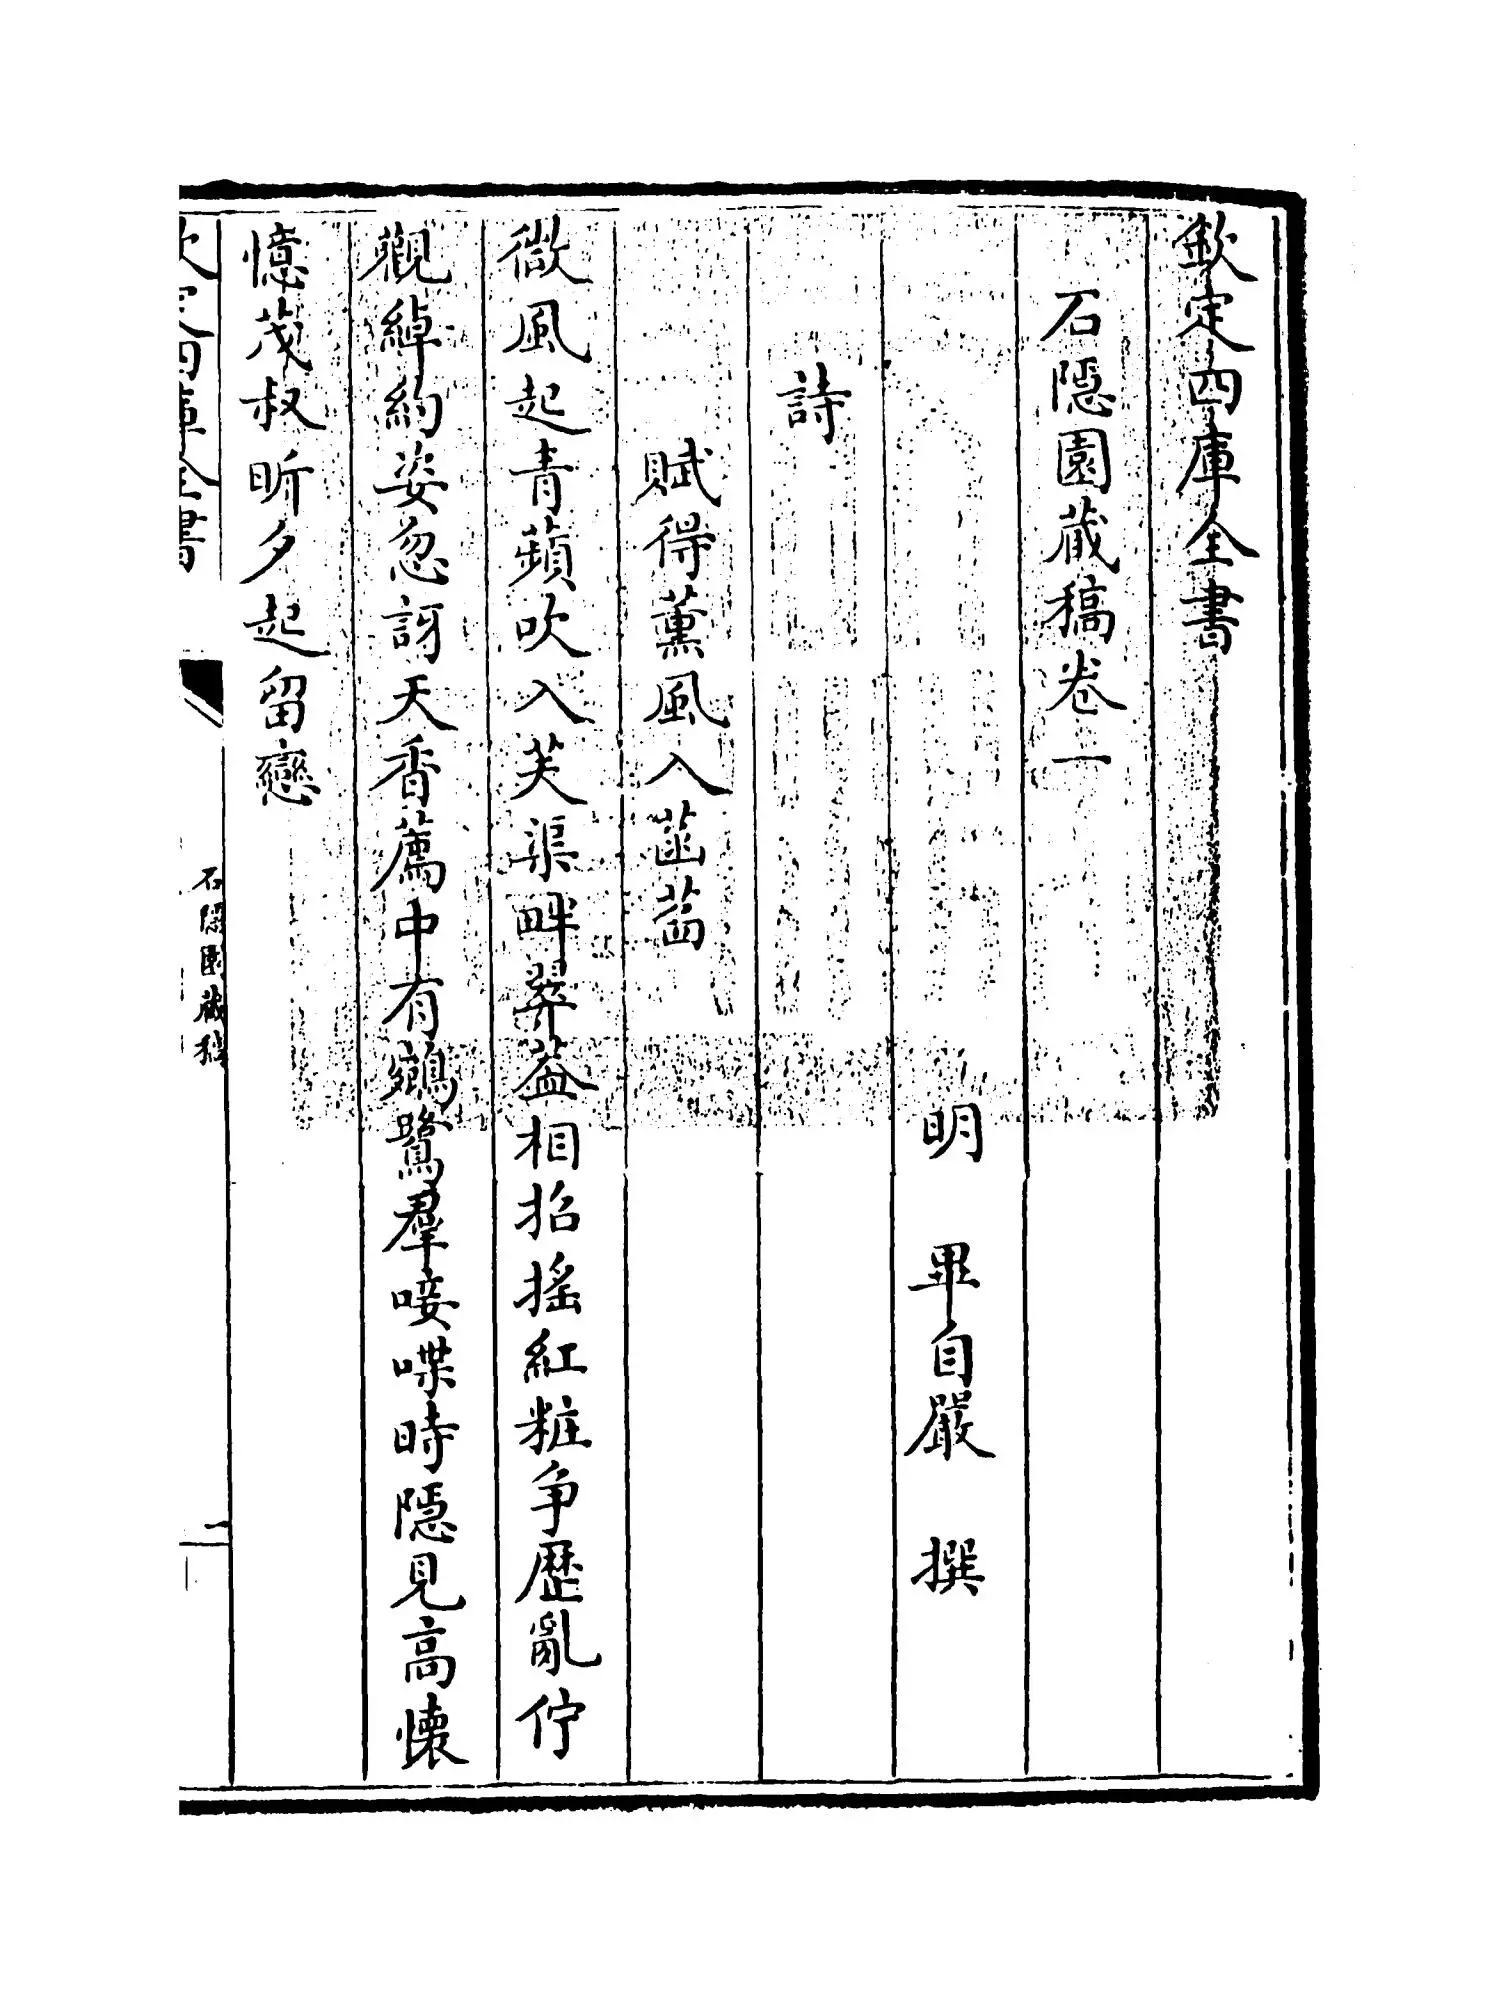 欽定四庫全書
石隱園蔵稿卷一
明 畢自嚴 撰
詩
賦得薰風入菡萏
微風起青蘋吹入芙渠畔翠葢相招搖紅粧爭歷亂佇
觀綽約姿忽訝天香薦中有鵷鷺羣唼喋時隱見高懷
憶茂叔昕夕起留戀
欽定四庫全書
石隱園蔵稿
一